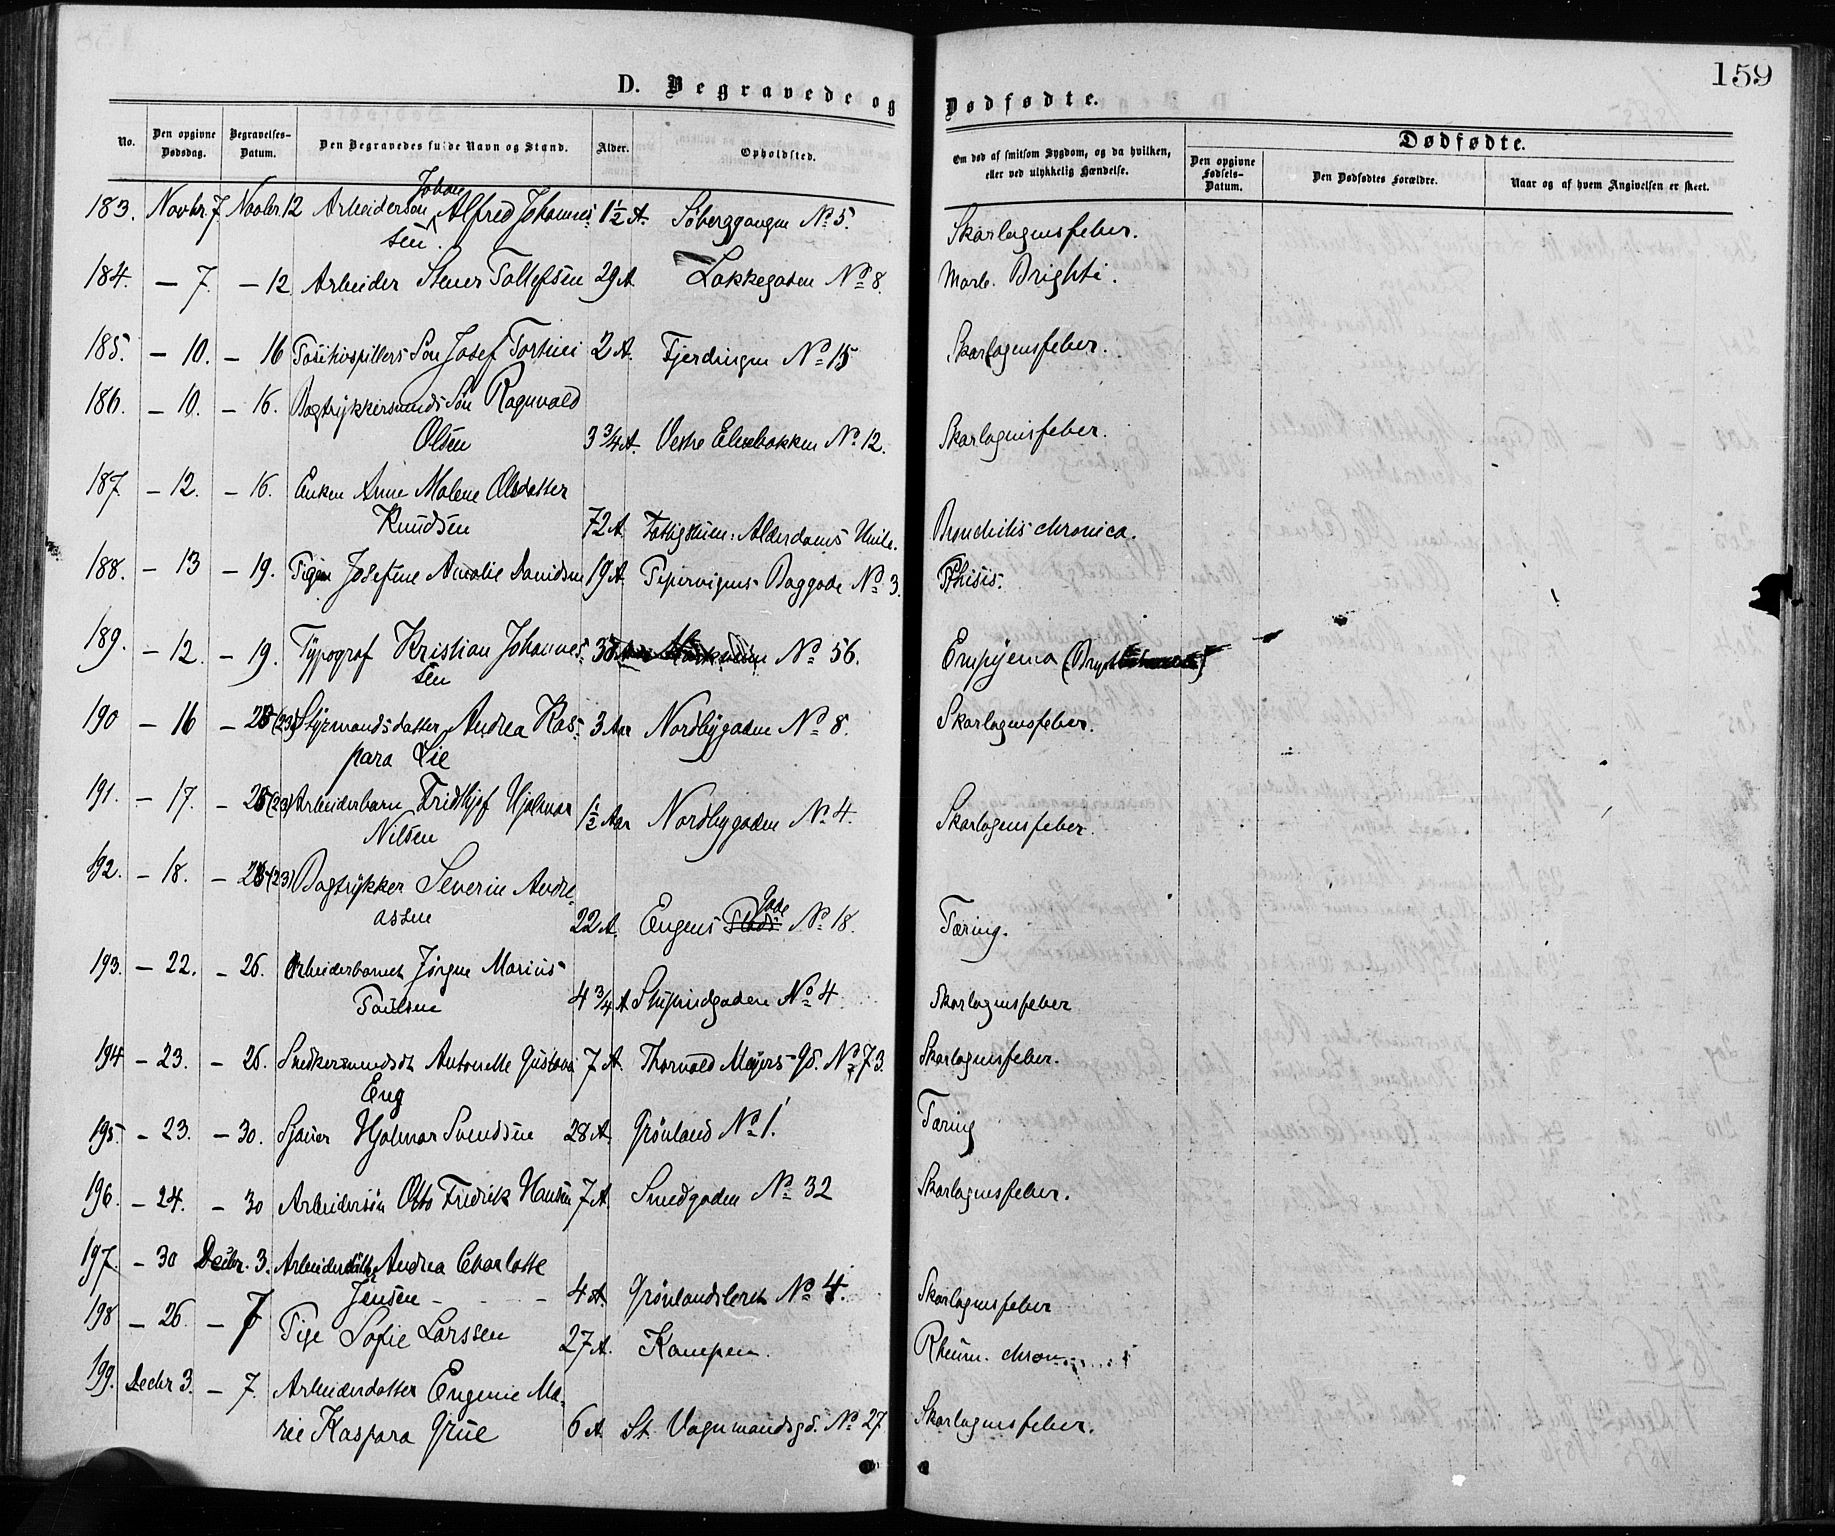 159
D. Begravede og Dødfødte.
No. Den opgivne Dødsdag. Begravelses-Datum. Den Begravedes fulde Navn og Stand. Alder. Opholdsted. Om død af smitsom Sygdom, og da hvilken, eller ved ulykkelig Hændelse. Dødfødte. Den opgivne Fødsels-Datum. Den Dødfødtes Forældre. Naar og af hvem Angivelsen er skeet.
Johan
183. Novbr. 7 Novbr. 12 Arbeiderson Alfred Johannes- 1½ A. Søberggangen No 5. Skarlagensfeber.
sen.
184. — 7. — 12 Arbeider Stener Tollefsen 29 A. Lakkegaden No 8. Morb. Brighti.
185. — 10. — 16 Positivspillers Søn Josef 2 A. Fjerdingen No 15 Skarlagensfeber.
186. — 10. — 16. Bogtrykkersvends Søn Ragnvald
Olsen 3¾ A. Vestre Elvebakken No 12. Skarlagensfeber.
187. — 12. — 16. Enken Anne Malene Olsdatter
Knudsen 72 A. Bronchitis chronica.
188. — 13 — 19. Pigen Josefine Amalie Davidsen 19 A. Pipervigens Baggade No 3. Phtisis.
189. — 12. — 19. Typograf Kristian Johannes- No 56. Empyema
sen
190 — 16 — (23) Styrmandsdatter Andrea Kas- 3 Aar Nordbygaden No 8. Skarlagensfeber.
para Lie
191. — 17. — (23) Arbeiderbarn Fridthjof Hjalmar
Nilsen 1½ Aar Nordbygaden No 4. Skarlagensfeber.
192. — 18. — (23) Bogtrykker Severin Andre-
assen 22 A. Engens Gade No 18. Tæring.
193. — 22. — 26. Arbeiderbarnet Jørgen Marius
Paulsen 4¾ A No 4 Skarlagensfeber
194 — 23. — 26. Snedkersvendsdt Antonette Gustava 7 A. Thorvald Meyers Gd. No 73. Skarlagensfeber.
Eng
195. — 23. — 30. Sjauer Hjalmar Svendsen 28 A. Grønland No 1. Tæring
196. — 24. — 30 Arbeidersøn Otto Fredrik Hansen 7 A. Smedgaden No 32 Skarlagensfeber.
197. — 30 Decbr. 3. Arbeiderdatter Andrea Charlotte
Jensen 4 A. Grønlandsleret No 4. Skarlagensfeber
198 — 26. — 7 Pige Sofie Larssen 27 A. Kampen. Rheum. chron.
199. Decbr 3. — 7. Arbeiderdatter Eugenie Ma-
rie Kaspara Grue 6 A. St. Vognmandsgd. No 27 Skarlagensfeber.